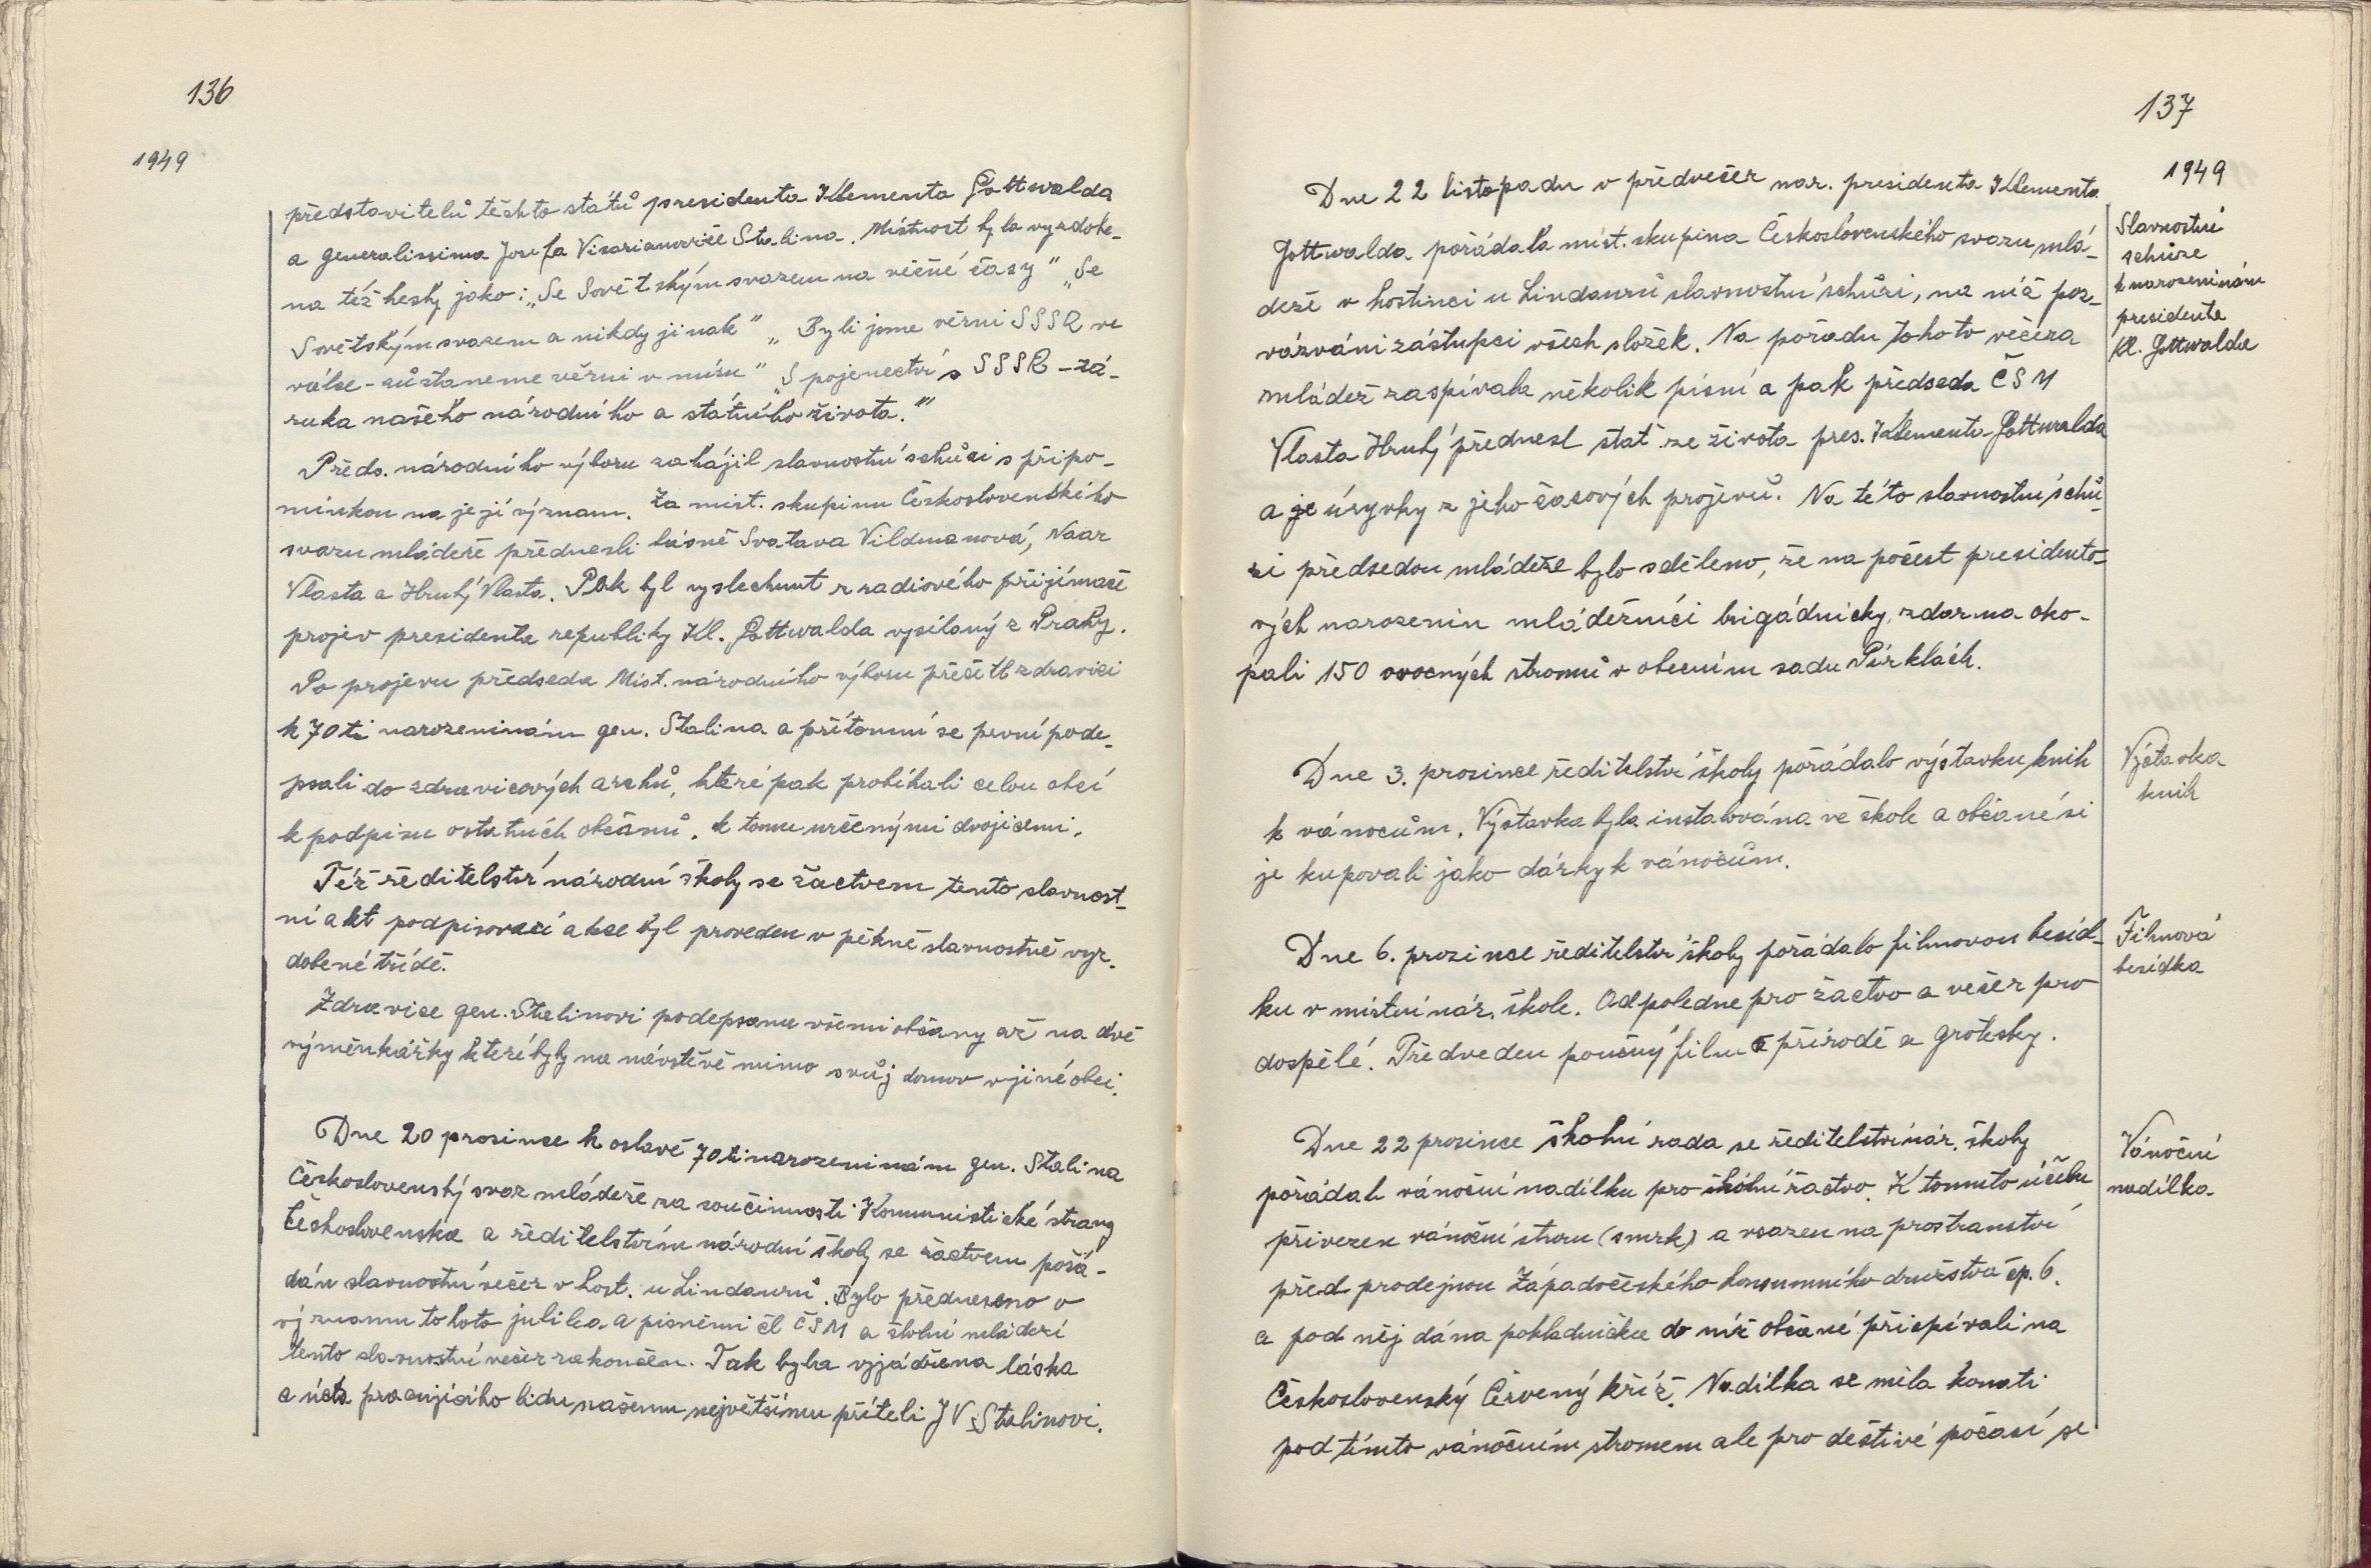 136
1949
představitelů těchto států presidenta Klementa Gottwalda
a generalissima Josefa Visarianoviče Stalina. Místnost byla vyzdobe-
na též hesly jako: „Se Sovětským svazem na věčné časy" „Se
Sovětským svazem a nikdy jinak" „Byli jsme věrni SSSR ve
válce - zůstaneme věrni v míru" „Spojenectví s SSSR - zá-
ruka našeho národního a státního života."
Předs. národního výboru zahájil slavnostní schůzi s připo-
mínkou na její význam. Za míst. skupinu Československého
svazu mládeže přednesli básně Svatava Vildmanová, Naar
Vlasta a Hrubý Vlasta. Pak byl vyslechnut z radiového přijímače
projev presidenta republiky Kl. Gottwalda vysílaný z Prahy.
Po projevu předseda Míst. národního výboru přečetl zdravici
k 70ti narozeninám gen. Stalina a přítomní se první pode-
psali do zdravicových archů, které pak probíhali celou obcí
k podpisu ostatních občanů, k tomu určenými dvojicemi.
Též ředitelství národní školy se žactvem tento slavnost-
ní akt podpisovací akce byl proveden v pěkně slavnostně vyz-
dobené třídě.
Zdravice gen. Stalinovi podepsana všemi občany až na dvě
výměnkářky které byly na návštěvě mimo svůj domov v jiné obci.
Dne 20 prosince k oslavě 70ti narozeninám gen. Stalina
Československý svaz mládeže za součinnosti Komunistické strany
Československa a ředitelstvím národní školy se žactvem pořá-
dán slavnostní večer v host. u Lindaurů. Bylo předneseno o
významu tohoto jubilea a písněmi čl ČSM a školní mládeží
tento slavnostní večer zakončen. Tak byla vyjádřena láska
a úcta pracujícího lidu našemu největšímu příteli J V Stalinovi.
137
1949
Dne 22 listopadu v předvečer nar. presidenta Klementa
Gottwalda pořádala míst. skupina Československého svazu mlá-
deže v hostinci u Lindaurů slavnostní schůzi, na níž poz-
vázváni zástupci všech složek. Na pořadu tohoto večera
mládež zaspívala několik písní a pak předseda ČSM
Vlasta Hrubý přednesl stať ze života pres. Klementa Gottwalda
a je úryvky z jeho časových projevů. Na této slavnostní schů-
zi předsedou mládeže bylo sděleno, že na počest presidento-
vých narozenin mládežníci brigádnicky, zdarma oko-
pali 150 ovocných stromů v obecním sadu Pírklách.
Dne 3. prosince ředitelství školy pořádalo výstavku knih
k vánocům. Výstavka byla instalována ve škole a občané si
je kupovali jako dárky k vánocům.
Dne 6. prosince ředitelství školy pořádalo filmovou besíd-
ku v místní nár. škole. Odpoledne pro žactvo a večer pro
dospělé. Předveden poučný film o přírodě a grotesky.
Dne 22 prosince školní rada se ředitelství nár. školy
pořádali vánoční nadílku pro školní žactvo. K tomuto účelu
přivezen vánoční strom (smrk) a vsazen na prostranství
před prodejnou Západočeského konsumního družstva čp. 6.
a pod něj dána pokladnička do níž občané přispívali na
Československý Červený kříž. Nadílka se měla konati
pod tímto vánočním stromem ale pro deštivé počasí se
Slavnostní
schůze
k narozeninám
presidenta
Kl. Gottwalda
Výstavka
knih
Filmová
besídka
Vánoční
nadílka